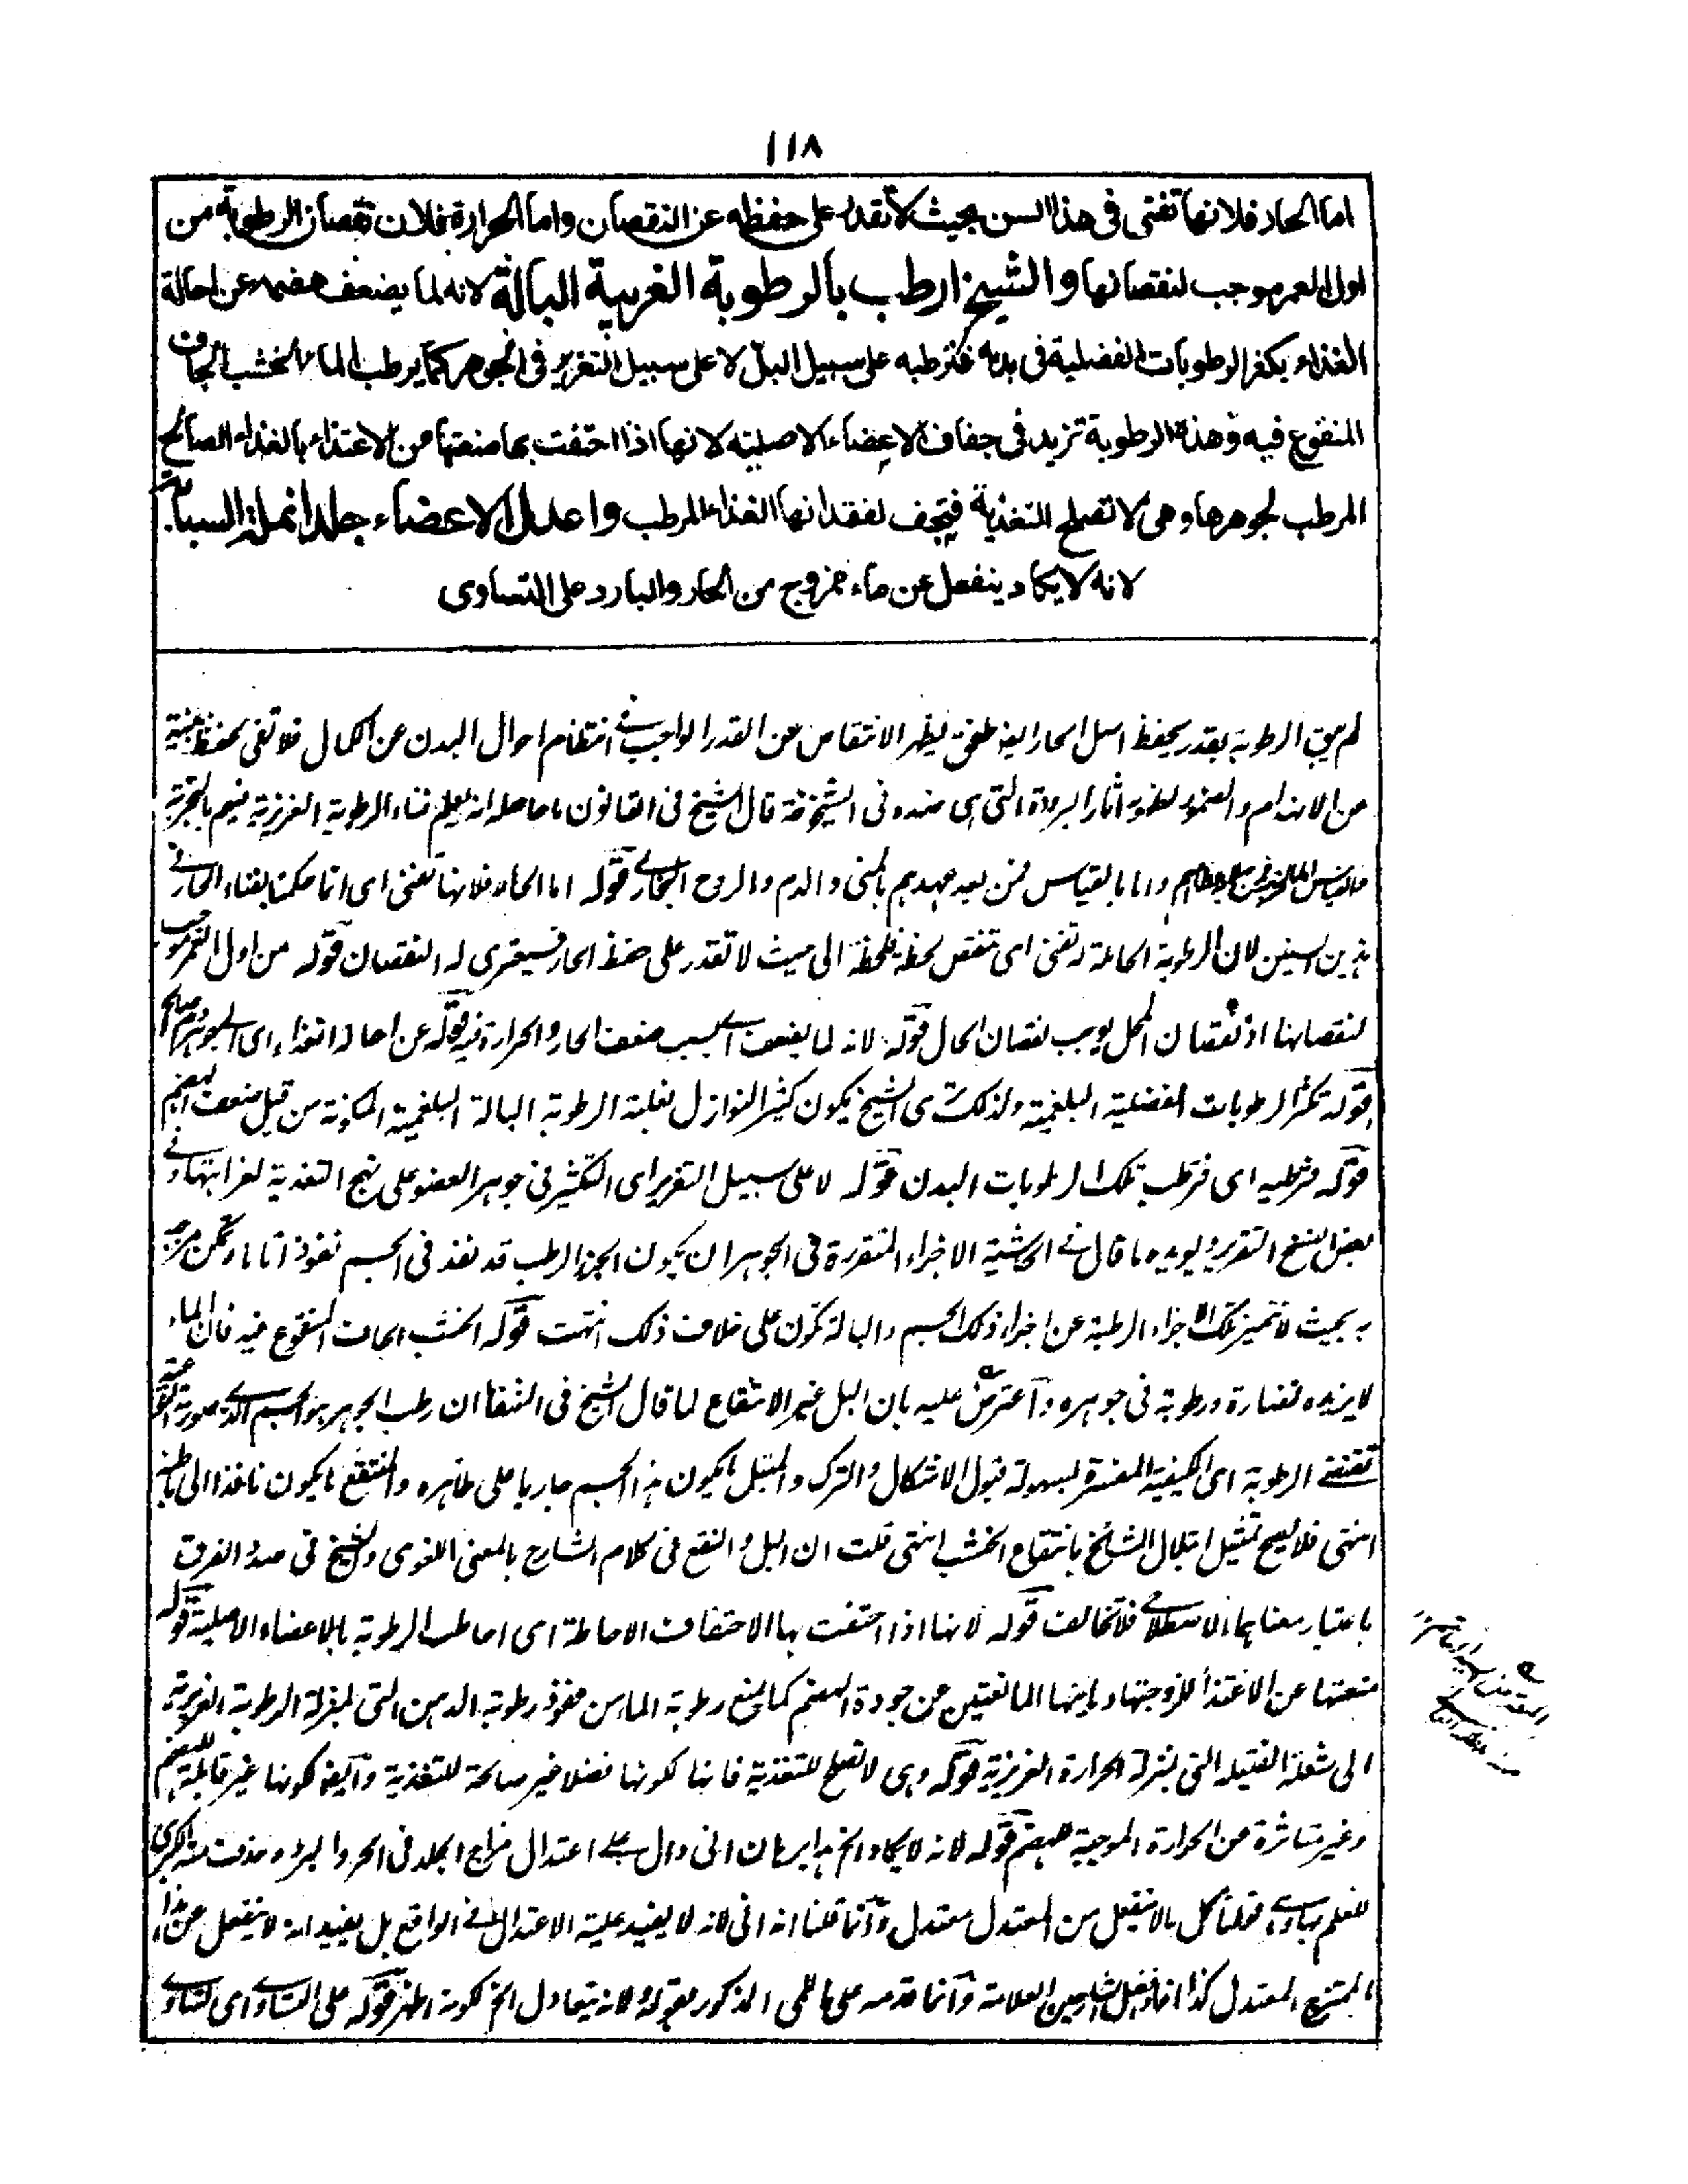 ١١٨
اما الحار فلانها تفنى فى هذا السن بحيث لا تقدر على حفظه عن النقصان واما الحرارة فلان نقصان الرطوبة من
اول العمر موجب لنقصانها والشيخ ارطب بالرطوبة الغريبة البالة لانه لما يضعف هضمه عن احالة
الغذاء يكثر الرطوبات الفضلية فى بدنه فترطبه على سبيل البل لا على سبيل التغزير فى الجوهر كما يرطب الماء الخشب الجاف
المنقوع فيه وهذه الرطوبة تزيد فى جفاف الاعضاء الاصلية لانها اذا احتفت بها منعتها من الاغتذاء بالغذاء الصالح
المرطب لجوهرها وهى لا تصلح للتغذية فتجف لفقدانها الغذاء المرطب واعدل الاعضاء جلد انملة السبابة
لانه لا يكاد ينفعل عن ماء ممزوج من الحار والبارد على التساوى
لم يبق الرطوبة بقدر يحفظ اصل الحار الغ يظهر الانتقاص عن القدر الواجب فى انتظام احوال البدن عن الكمال فلا تفى بحفظ
من الانهدام و لظهور آثار البرودة التى هى ضده فى الشيخوخة قال الشيخ فى القانون ما حاصله انه يعلم فناء الرطوبة الغريزية فيهم بالتجربة
والقياس واما بالقياس فمن بعد عهدهم بالمنى والدم والروح البخارى قوله اما الحار فلانها تفنى اى انما حكمنا بفناء الحار فى
هذين السنين لان الرطوبة الحاملة له تفنى اى تنقص لحظة فلحظة الى حيث لا تقدر على حفظ الحار فيعترى له النقصان قوله من اول العمر موجب
لنقصانها اذ نقصان المحل يوجب نقصان الحال قوله لانه لما يضعف اى بسبب ضعف الحار والحرارة فيه قوله عن احالة الغذاء اى الى جوهر
قوله تكثر الرطوبات الفضلية البلغمية ولذلك ترى الشيخ يكون كثير النوازل لغلبة الرطوبة البالة البلغمية المكونة من قبل ضعف الهضم
قوله فترطبه اى فترطب تلك الرطوبات البدن قوله لا على سبيل التغزير اى التكثير فى جوهر العضو على نهج التغذية لغرابتها وفى
بعض النسخ التقرير ويؤيده ما قال فى الحاشية الاجزاء المتقررة فى الجوهر ان يكون الجزء الرطب قد نفذ فى الجسم نفوذا تاما وتمكن
به بحيث لا تتميز تلك الاجزاء الرطبة عن اجزاء ذلك الجسم والبالة تكون على خلاف ذلك انتهت قوله الخشب الجاف المنقوع فيه فان الماء
لا يزيده نضارة ورطوبة فى جوهره واعترض عليه بان البل غير الانتقاع لما قال الشيخ فى الشفا ان رطب الجوهر هو الجسم الذى صورته
تقتضى الرطوبة اى الكيفية المفسرة بسهولة قبول الاشكال والترك والمبتل ما يكون هذا الجسم جاريا على ظاهره والمنتقع ما يكون نافذا الى باطنه
انتهى فلا يصح تمثيل ابتلال المشائخ بانتقاع الخشب انتهى قلت ان البل والنقع فى كلام الشارح بالمعنى اللغوى والشيخ فى صدد الفرق
باعتبار معناهما الاصطلاحى فلا تخالف قوله لانها اذا احتفت بها الاحتفاف الاحاطة اى احاطت الرطوبة بالاعضاء الاصلية قوله
منعتها عن الاغتذاء للزوجتها المانعتين عن جودة الهضم كما يمنع رطوبة الماء من نفوذ رطوبة الدهن التى بمنزلة الرطوبة الغريزية
الى شعلة الفتيلة التى بمنزلة الحرارة الغريزية قوله وهى لا تصلح للتغذية فانها لكونها فضلا غير صالحة للتغذية وايضا لكونها غير قابلة للهضم
وغير متأثرة عن الحرارة الموجبة قوله لانه لا يكاد الخ هذا برهان انى دال على اعتدال مزاج الجلد فى الحر والبرد وحذفت منه الكبرى
للعلم فقلنا كل ما لا ينفعل من المعتدل معتدل وانما قلنا انه انى لانه لا يفيد علية الاعتدال فى الواقع بل يفيد انه لا ينفعل عن
الممتزج المعتدل كذا افاد افضل الشارحين العلامة وانما قدمه على اللمى المذكور بقوله ولانه يتعادل الخ لكونه اظهر قوله على التساوى اى تساوى